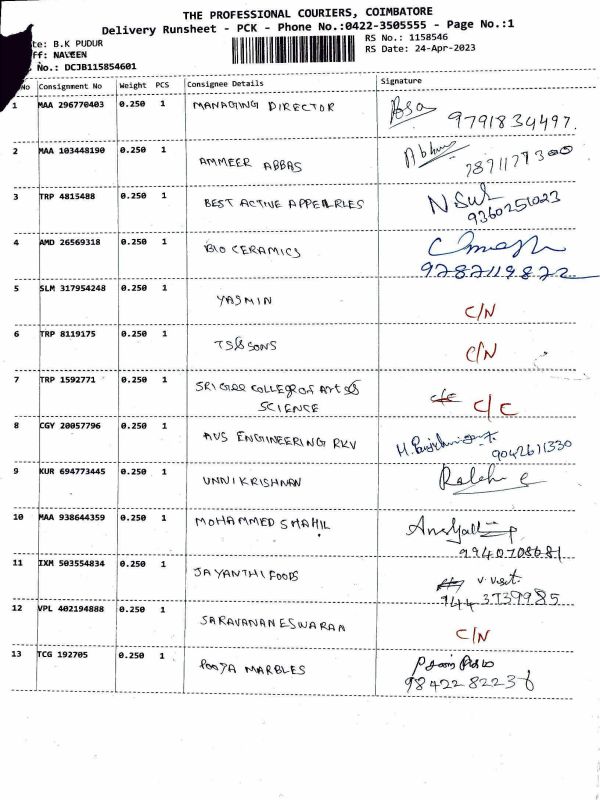 THE PROFESSIONAL COURIERS, COIMBATORE
Delivery Runsheet - PCK - Phone No.:0422-3505555 - Page No.:1
te: B.K PUDUR RS No.: 1158546
ff: NAVEEN RS Date: 24-Apr-2023
No.: DCJB115854601
No Consignment No Weight PCS Consignee Details Signature
1 MAA 296770403 0.250 1 MANAGING DIRECTOR
9791834497.
2 MAA 103448190 0.250 1 AMMEER ABBAS
7871177300
3 TRP 4815488 0.250 1 BEST ACTIVE APPEARLES
9360251023
4 AMD 26569318 0.250 1 BIO CERAMICS
9787119872
5 SLM 317954248 0.250 1 YASMIN C/N
6 TRP 8119175 0.250 1 TSS SONS C/N
7 TRP 1592771 0.250 1 SRI GRG COLLEGE OF ARTS & C/C
SCIENCE
8 CGY 20057796 0.250 1 AVS ENGINEERING RKV
9042611330
9 KUR 694773445 0.250 1 UNNIKRISHNAN
10 MAA 938644359 0.250 1 MOHAMMED SHAHIL
9940708681
11 IXM 503554834 0.250 1 JAYANTHI FOODS
9443739985
12 VPL 402194888 0.250 1 SARAVANANESWARAN C/N
13 TCG 192705 0.250 1 POOJA MARBLES
9842282236